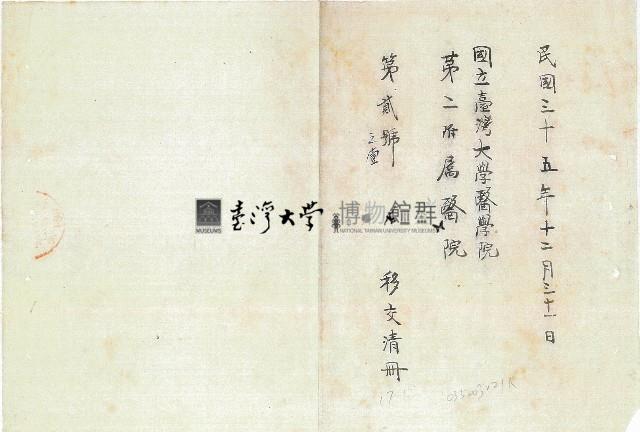 民國三十五年十二月三十一日
國立臺灣大學醫學院
第二附屬醫院
第貳號
移交清冊
臺灣大學
博物館群
MUSEUMS
NATIONAL TAIWAN UNIVERSITY MUSEUMS